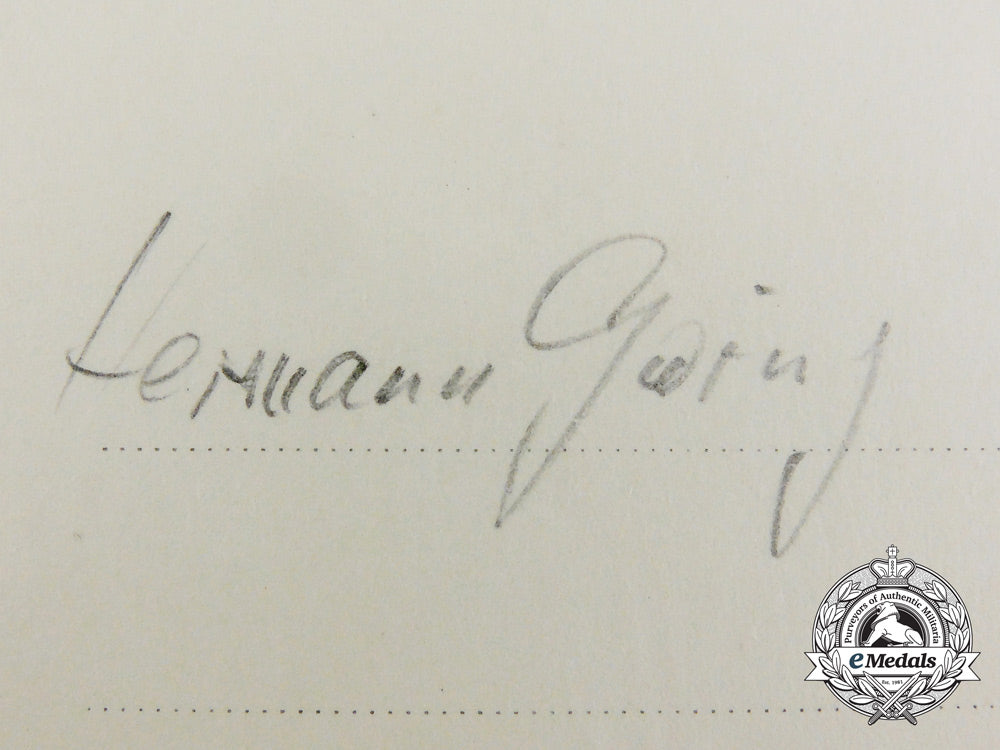 Hermann Göring
Purveyors of Authentic Militaria
eMedals
Est. 1961